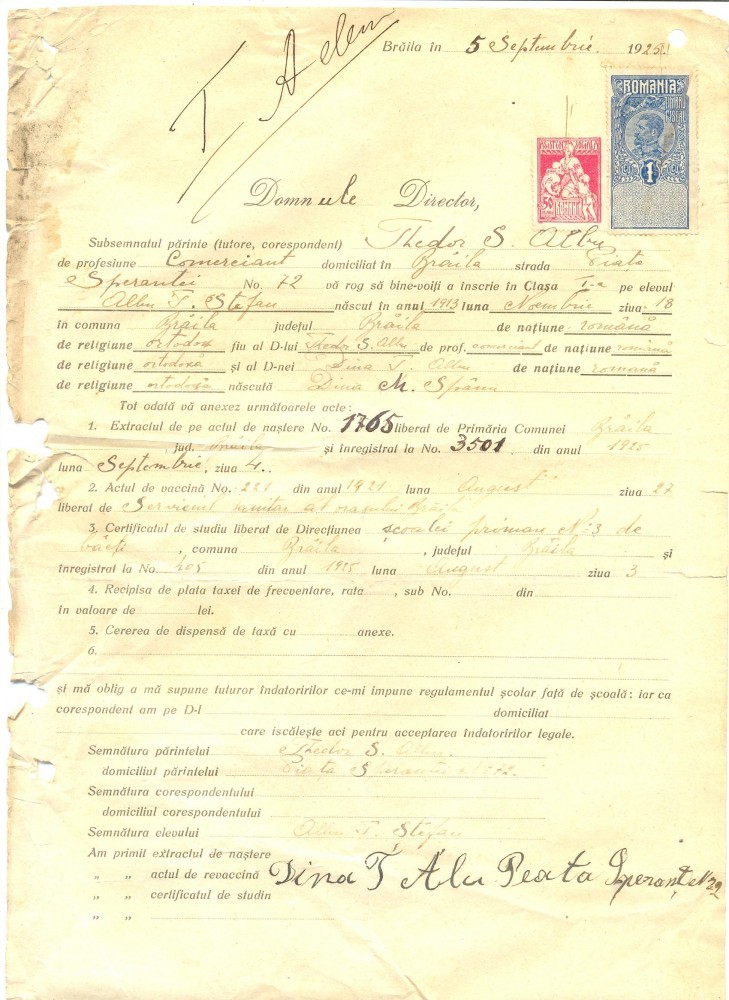 Brăila în 5 Septembrie 1925
ROMANIA
TIMBRU FISCAL
1 LEU
50
ROMANIA
Domnule Director,
Subsemnatul părinte (tutore, corespondent) Thedor S. Albu
de profesiune Comerciant domiciliat în Brăila strada Piața
Speranței No. 72 vă rog să bine-voiți a înscrie în Clasa I-a pe elevul
Albu T. Ștefan născut în anul 1913 luna Noembrie ziua 18
în comuna Brăila județul Brăila de națiune română
de religiune ortodox fiu al D-lui Thedor S. Albu de prof. comerciant de națiune română
de religiune ortodoxă și al D-nei Dina T. Albu de națiune română
de religiune ortodoxă născută Dina M. Spânu
Tot odată vă anexez următoarele acte:
1. Extractul de pe actul de naștere No. 1765 liberat de Primăria Comunei Brăila
, jud. Brăila și înregistrat la No. 3501 din anul 1925
luna Septembrie, ziua 4.
2. Actul de vaccină No. 221 din anul 1921 luna August ziua 27
liberat de Serviciul sanitar al orașului Brăila
3. Certificatul de studiu liberat de Direcțiunea școalei primare No 3 de
băeți, comuna Brăila, județul Brăila și
înregistrat la No. 205 din anul 1925 luna August ziua 3
4. Recipisa de plata taxei de frecventare, rata , sub No. din
în valoare de lei.
5. Cererea de dispensă de taxă cu anexe.
6.
și mă oblig a mă supune tuturor îndatoririlor ce-mi impune regulamentul școlar față de școală: iar ca
corespondent am pe D-l domiciliat
care iscălește aci pentru acceptarea îndatoririlor legale.
Semnătura părintelui Thedor S. Albu.
domiciliul părintelui Piața Speranței No 72.
Semnătura corespondentului
domiciliul corespondentului
Semnătura elevului Albu T. Ștefan
Am primit extractul de naștere
„ „ actul de revaccină Dina T Albu Peata Speranței N 72
„ „ certificatul de studin
„ „